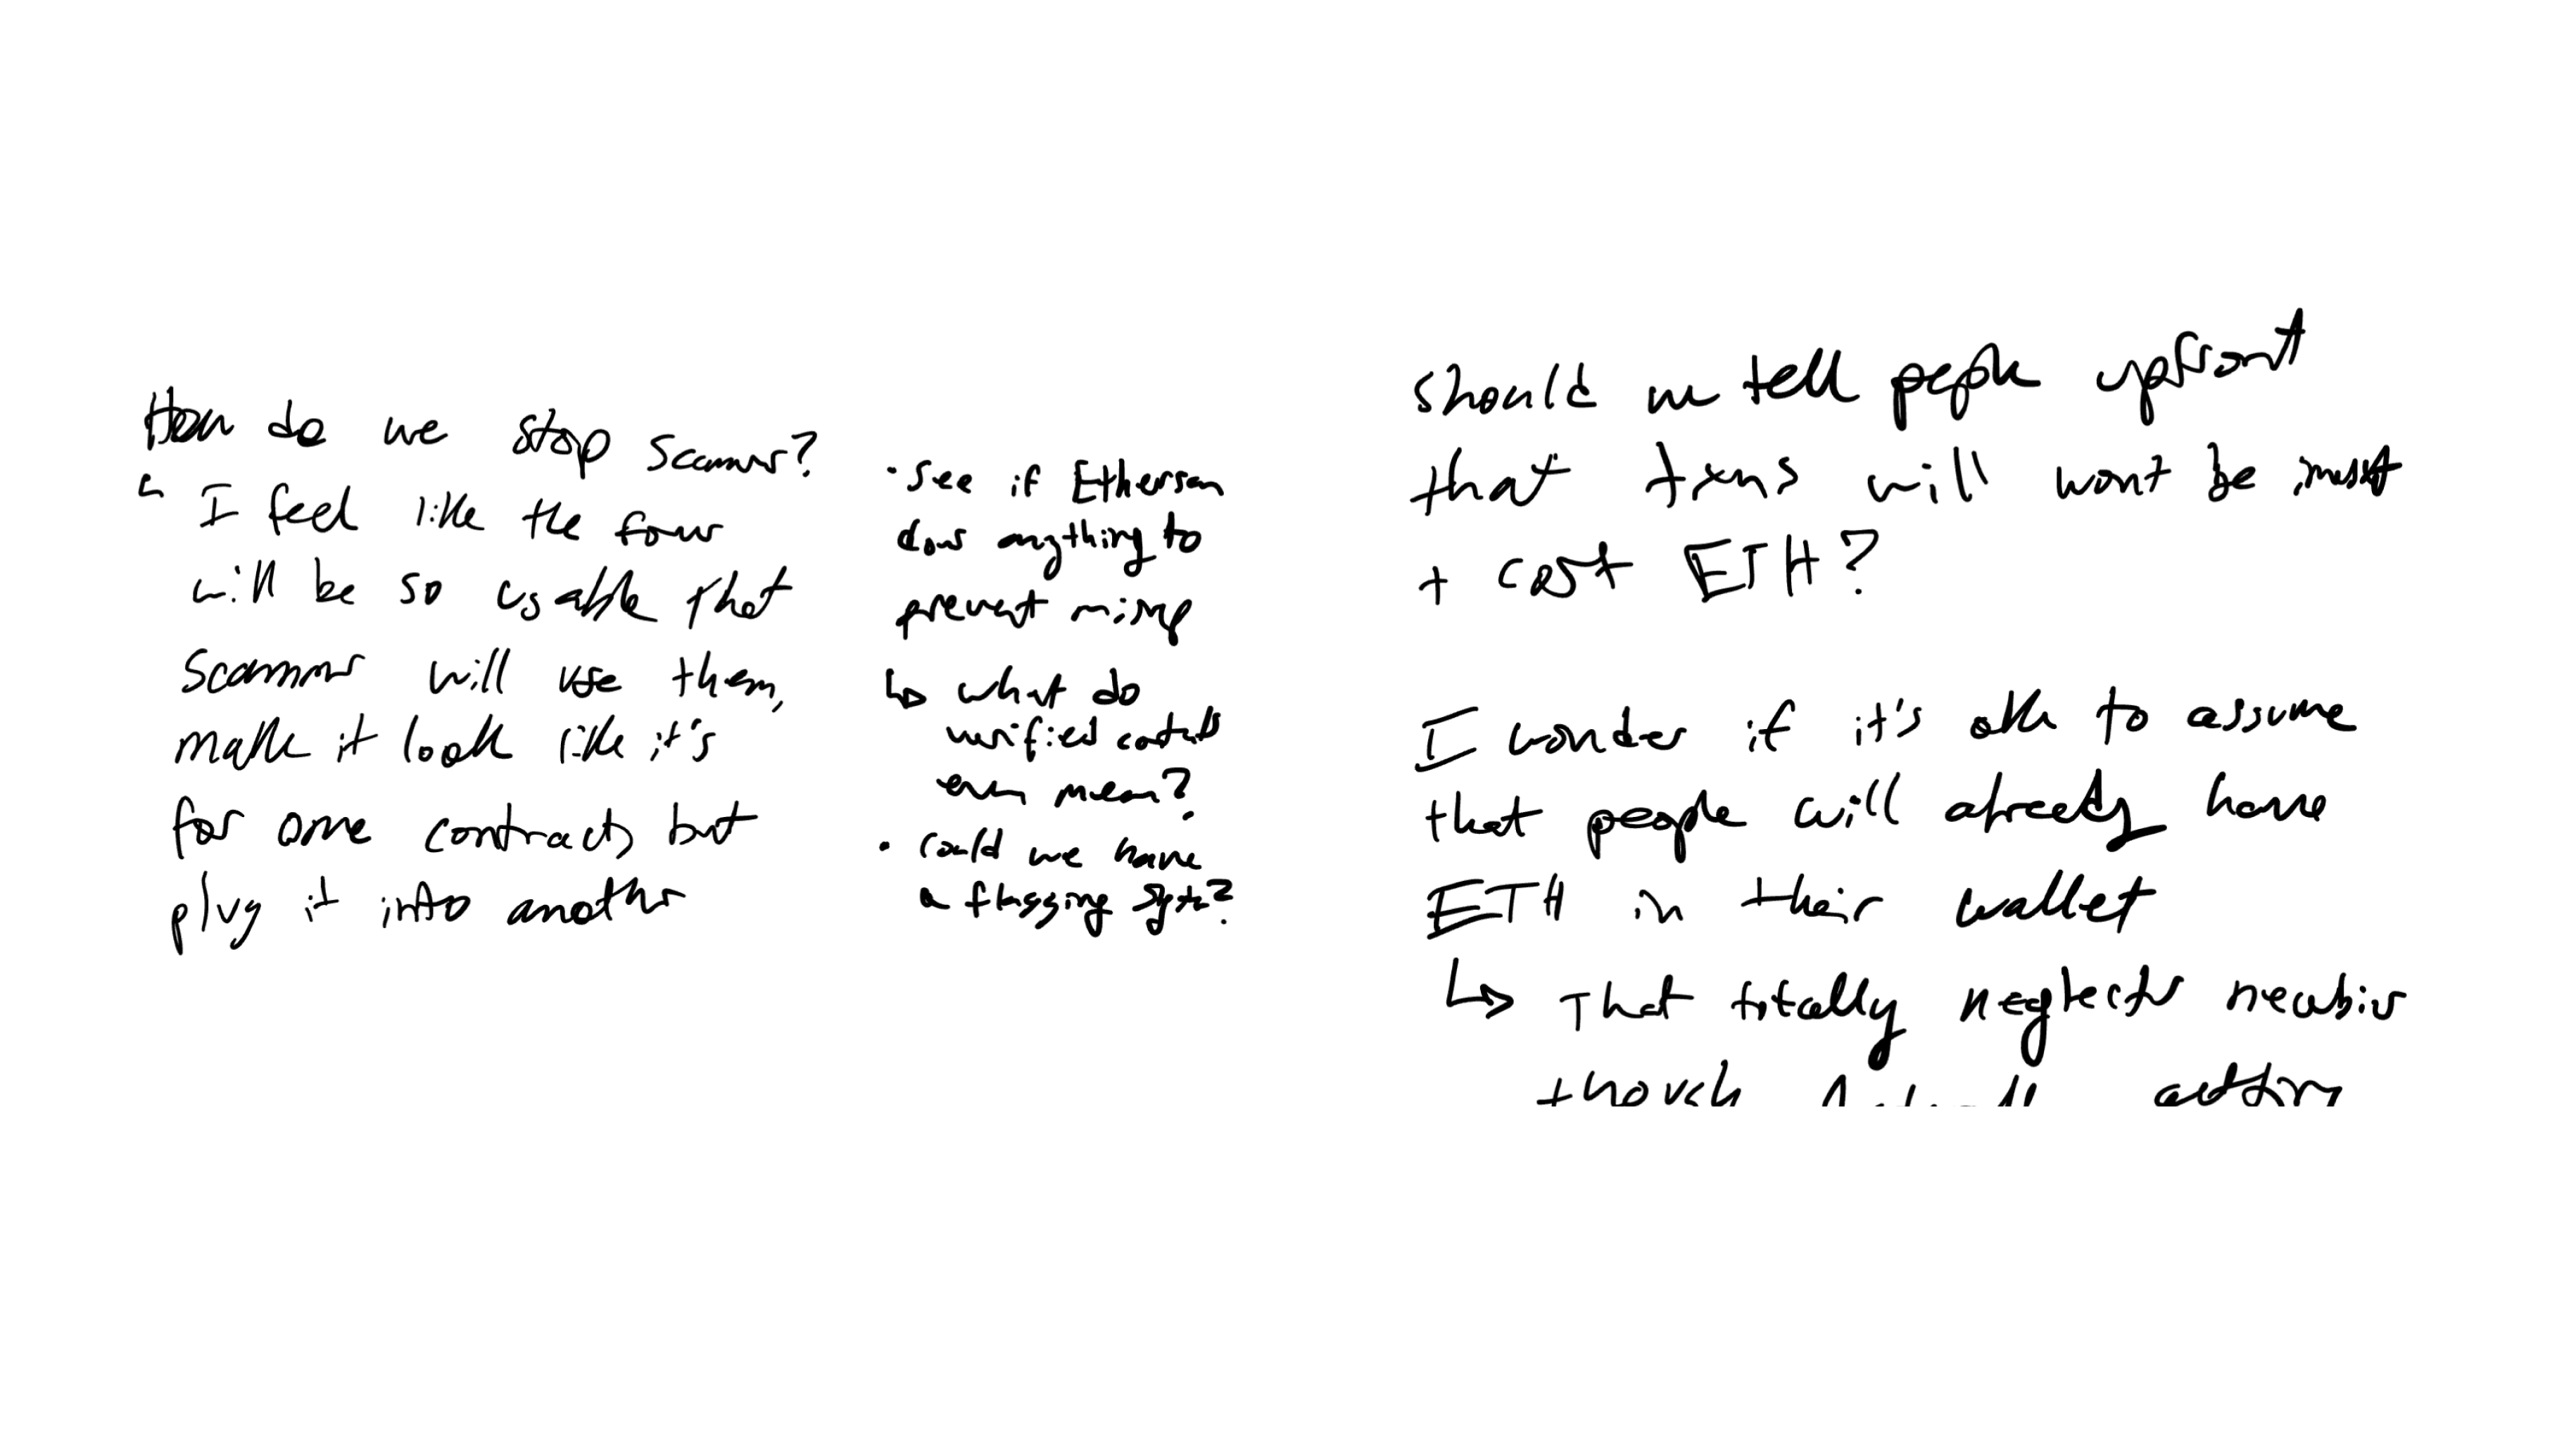 How do we stop scammers?
↳ I feel like the forms
will be so usable that
scammers will use them,
make it look like it's
for one contract, but
plug it into another
· See if Etherscan
does anything to
prevent misuse
↳ what do
verified contracts
even mean?
· Could we have
a flagging system?
should we tell people upfront
that txns will wont be instant
+ cost ETH?
I wonder if it's okay to assume
that people will already have
ETH in their wallet
↳ That totally neglects newbies
though